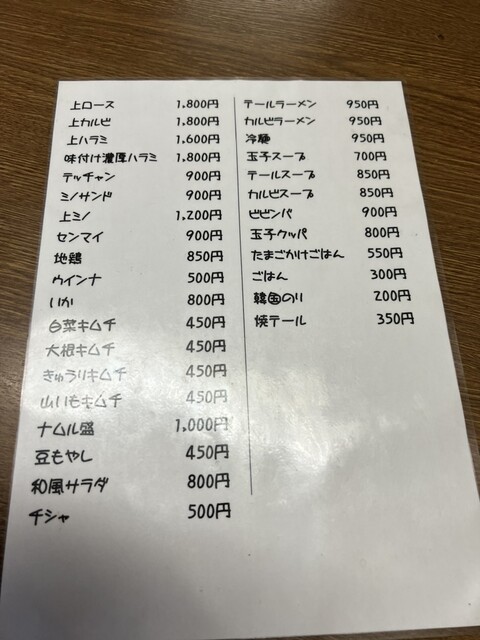 上ロース 1,800円
上カルビ 1,800円
上ハラミ 1,600円
味付け濃厚ハラミ 1,800円
テッチャン 900円
ミノサンド 900円
上ミノ 1,200円
センマイ 900円
地鶏 850円
ウインナ 500円
いか 800円
白菜キムチ 450円
大根キムチ 450円
きゅうりキムチ 450円
山いもキムチ 450円
ナムル盛 1,000円
豆もやし 450円
和風サラダ 800円
チシャ 500円
テールラーメン 950円
カルビラーメン 950円
冷麺 950円
玉子スープ 700円
テールスープ 850円
カルビスープ 850円
ビビンパ 900円
玉子クッパ 800円
たまごかけごはん 550円
ごはん 300円
韓国のり 200円
焼テール 350円